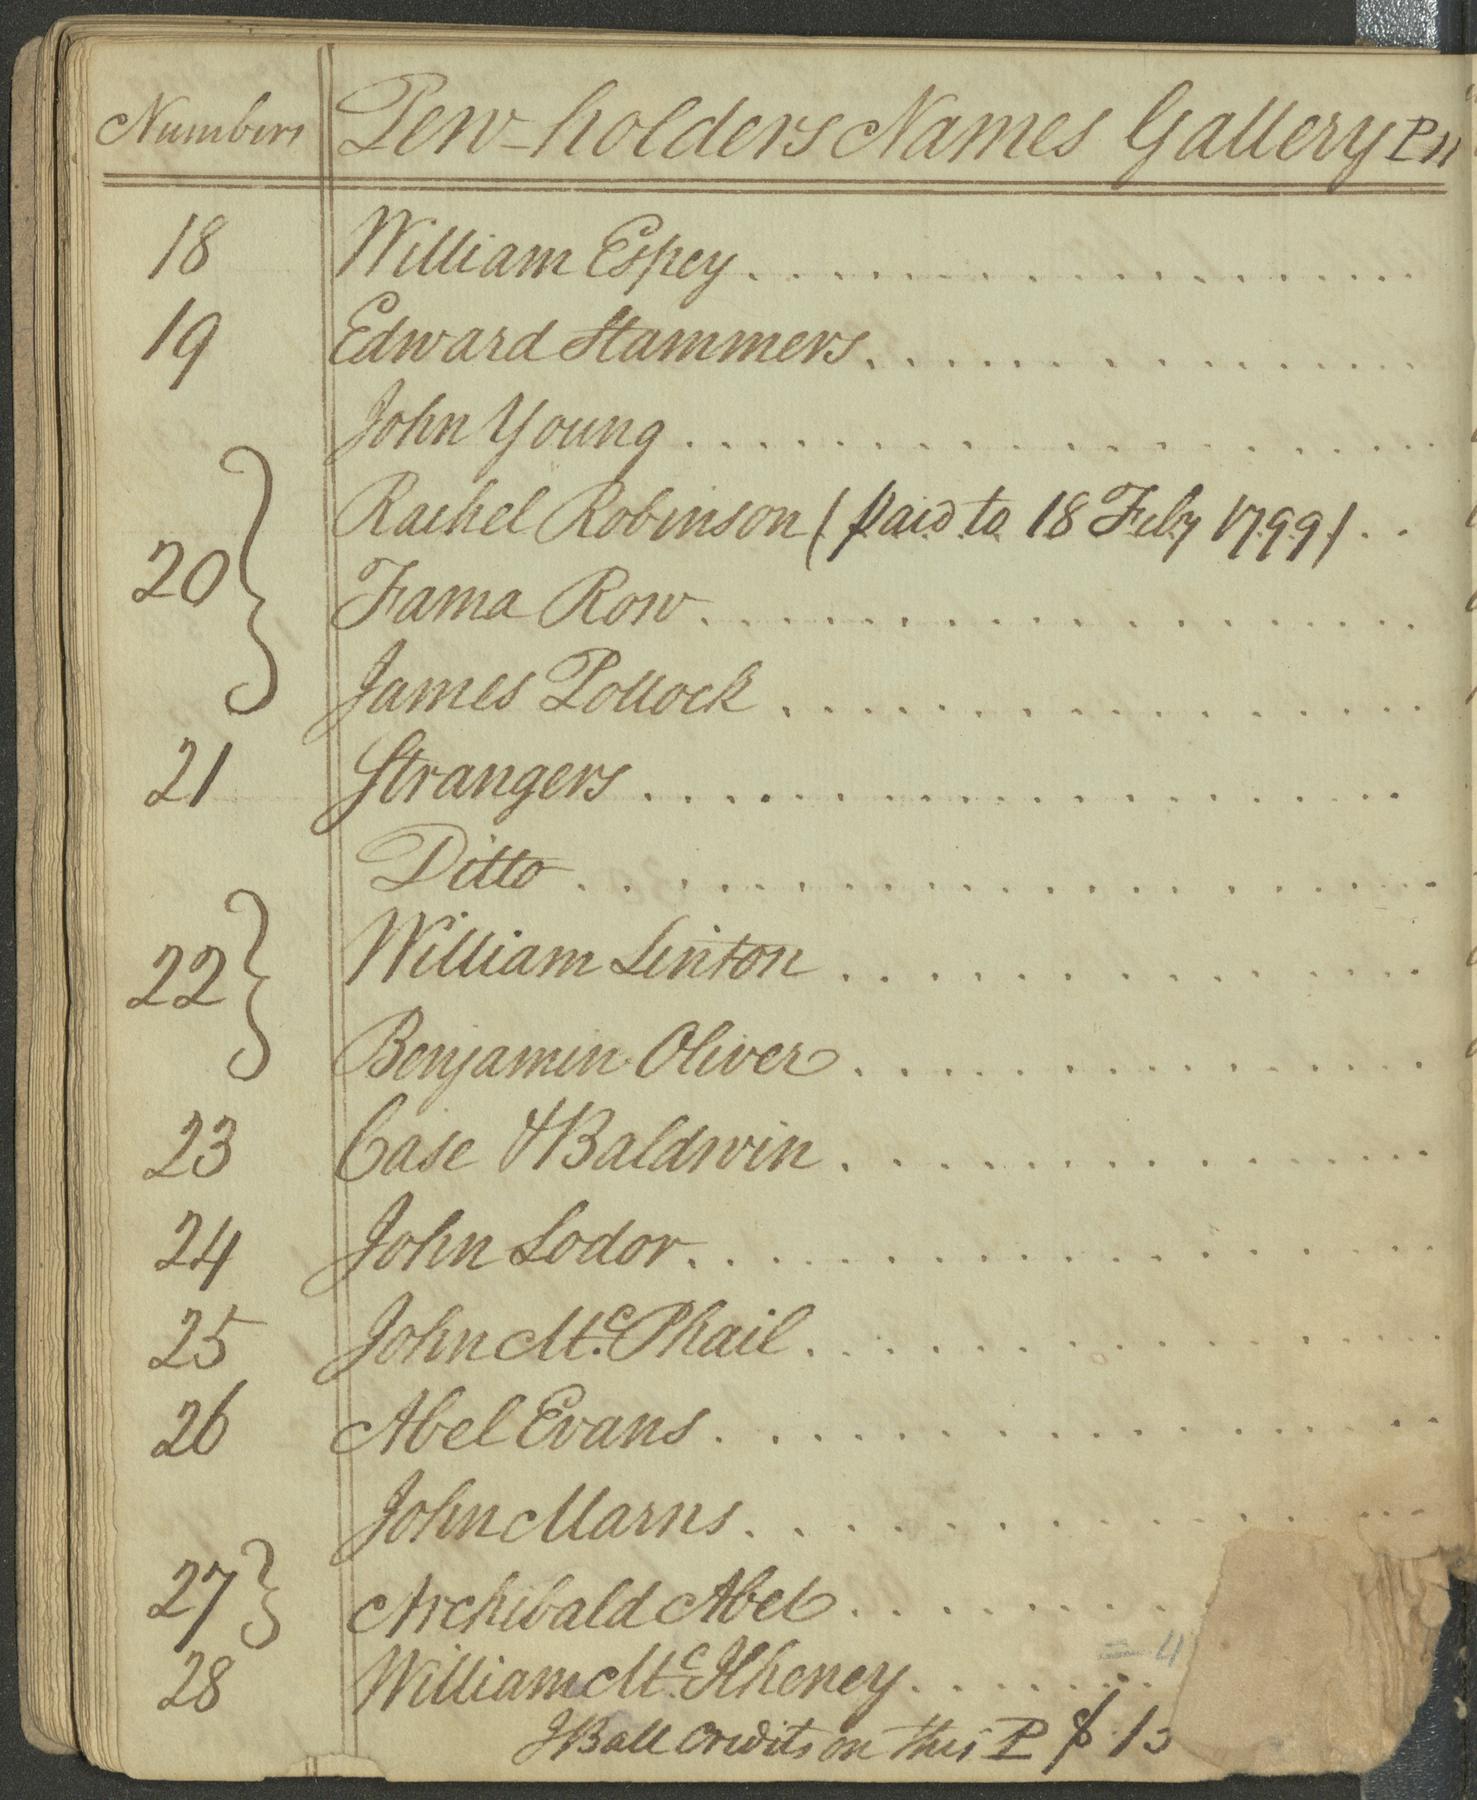 Numbers Pew-holders Names Gallery P 11
18 William Espey
19 Edward Stammers
John Young
Rachel Robinson (paid to 18 Feby 1799)
20 Fama Row
James Pollock
21 Strangers
Ditto
William Linton
22 Benjamin Oliver
23 Case & Baldwin
24 John Lodor
25 John Mc. Phail
26 Abel Evans
John Marns
27 Archibald Abel
= 4
28 William Mc. Ilheney
Ball Credits on this P $ 13